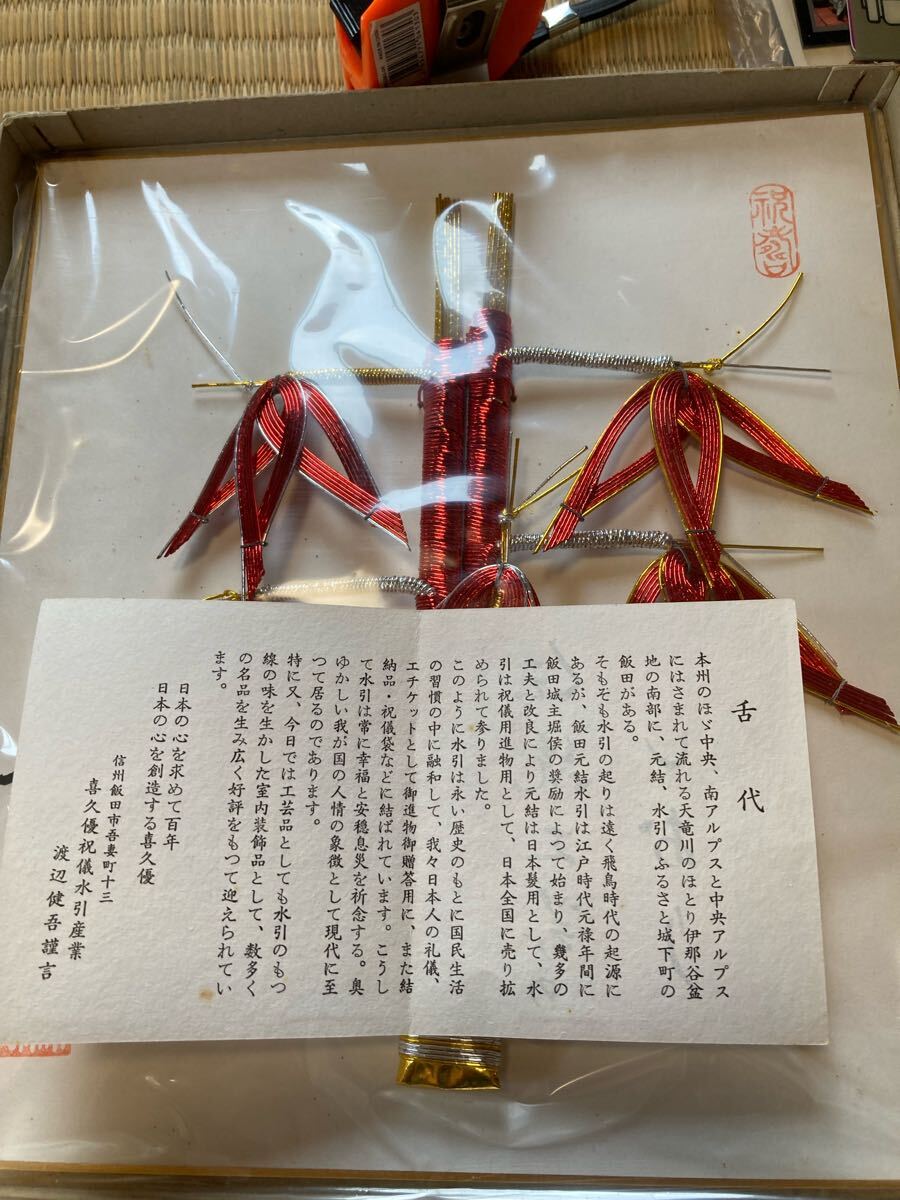 祝喜
舌代
本州のほゞ中央、南アルプスと中央アルプス
にはさまれて流れる天竜川のほとり伊那谷盆
地の南部に、元結、水引のふるさと城下町の
飯田がある。
そもそも水引の起りは遠く飛鳥時代の起源に
あるが、飯田元結水引は江戸時代元禄年間に
飯田城主堀侯の奨励によつて始まり、幾多の
工夫と改良により元結は日本髪用として、水
引は祝儀用進物用として、日本全国に売り拡
められて参りました。
このように水引は永い歴史のもとに国民生活
の習慣の中に融和して、我々日本人の礼儀、
エチケットとして御進物御贈答用に、また結
納品・祝儀袋などに結ばれています。こうし
て水引は常に幸福と安穏息災を祈念する。奥
ゆかしい我が国の人情の象徴として現代に至
つて居るのであります。
特に又、今日では工芸品としても水引のもつ
線の味を生かした室内装飾品として、数多く
の名品を生み広く好評をもつて迎えられてい
ます。
日本の心を求めて百年
日本の心を創造する喜久優
信州飯田市吾妻町十三
喜久優祝儀水引産業
渡辺健吾謹言